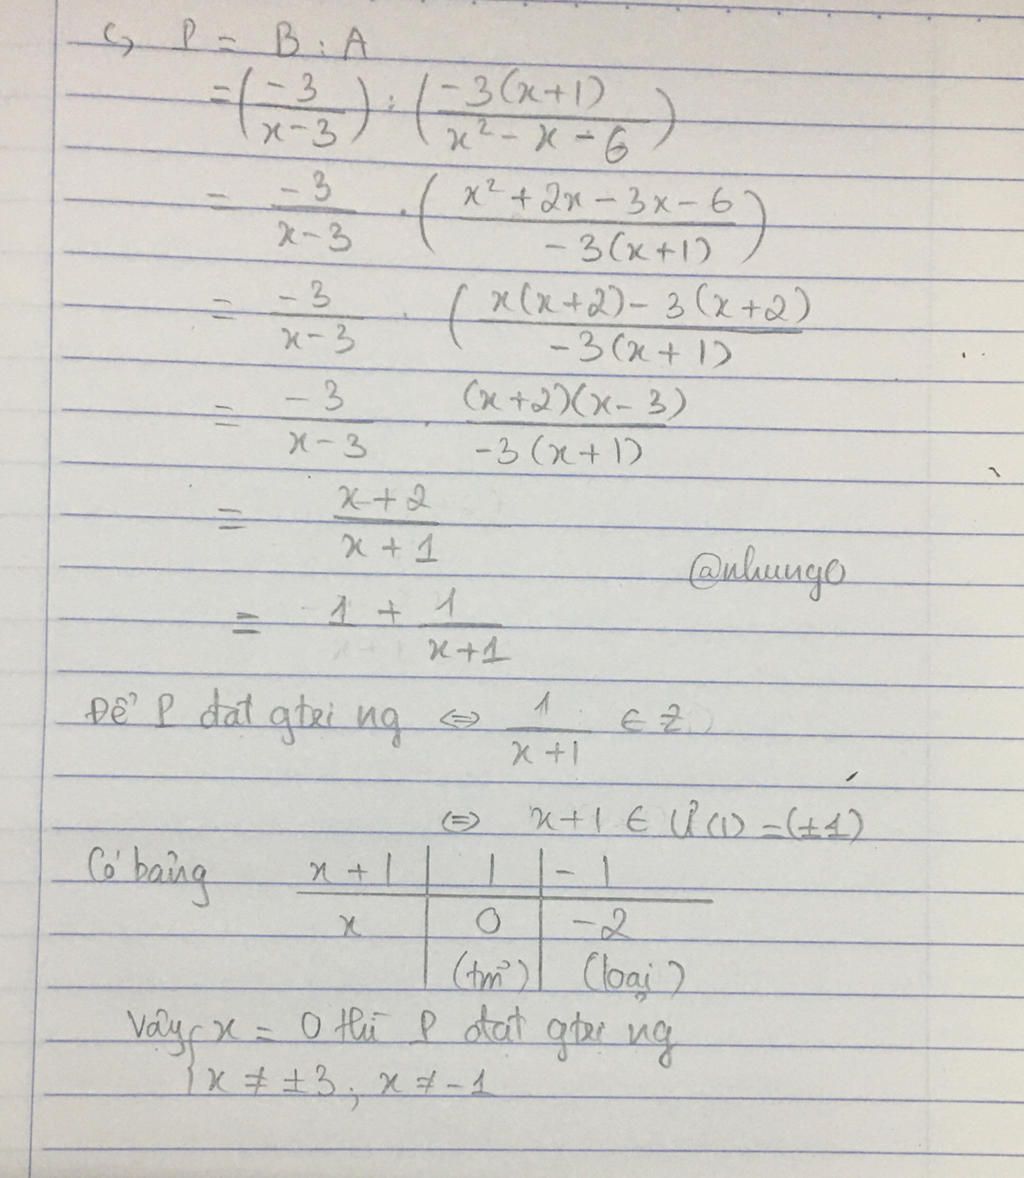 c, P = B : A
= (-3/(x-3)) : (-3(x+1)/(x² - x - 6))
= -3/(x-3) . ((x² + 2x - 3x - 6)/(-3(x+1)))
= -3/(x-3) . ((x(x+2) - 3(x+2))/(-3(x+1))
= -3/(x-3) . (x+2)(x-3)/(-3(x+1))
= (x+2)/(x+1)
@nhung0
= 1 + 1/(x+1)
Để P đạt gtrị ng <=> 1/(x+1) ∈ Z
<=> x+1 ∈ Ư(1) = (±1)
Có bảng x + 1 | 1 | -1
x | 0 | -2
(tm) (loại)
Vậy { x = 0 thì P đạt gtrị ng
x ≠ ±3; x ≠ -1